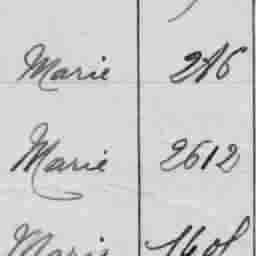 Marie 286
Marie 2612
Marie